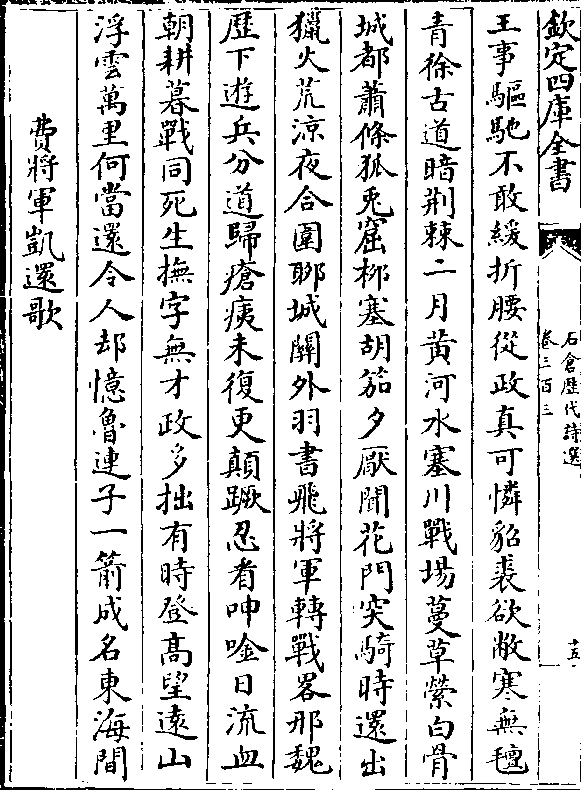 欽定四庫全書
石倉歴代詩選
卷三百三
十五
王事驅馳不敢緩折腰從政真可憐貂裘欲敝寒無氊
青徐古道暗荆棘二月黄河水塞川戰場蔓草縈白骨
城都蕭條狐兎窟栁塞胡笳夕厭聞花門突騎時還出
獵火荒涼夜合圍聊城關外羽書飛將軍轉戰畧那魏
歴下遊兵分道歸瘡痍未復更顛蹶忍看呻唫日流血
朝耕暮戰同死生撫字無才政多拙有時登髙望逺山
浮雲萬里何當還令人却憶魯連子一箭成名東海間
費將軍凱還歌